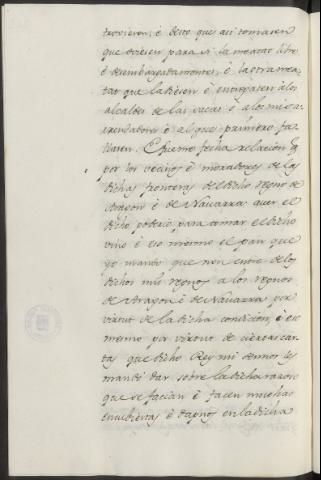 trovieren, é desto que asi tomasen
que oviesen para si la meatad libre
é desembargadamente, é la otra mea-
tad que la diesen é entregasen á los
alcaldes de las sacas é á los mis a-
rrendadores é al que primero fa-
llaren. E fueme fecha relacion q
por los vecinos é moradores de las
dichas fronteras del dicho regno de
Aragon é de Navarra quer el
dicho poderio, para tomar el dicho
vino é eso mesmo el pan que
yo mando que non entre de los
dichos mis regnos a los regnos
de Aragon é de Navarra, por
virtud de la dicha condicion, é eso
mesmo por virtud de ciertas car-
tas que el dicho Rey mi señor les
mandó dar sobre la dicha razon
que se facian é facen muchas
encubiertas é daños en la dicha